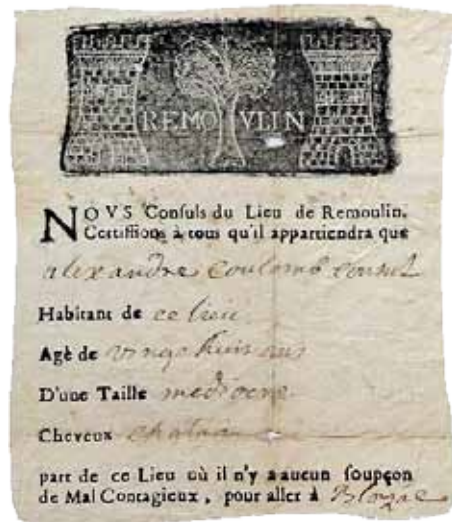 REMO VLIN
NOVS Conſuls du Lieu de Remoulin.
Certiffions à tous qu'il appartiendra que
alexandre coulomb consul
Habitant de ce lieu
Agè de vingt huit ans
D'une Taille mediocre
Cheveux chatain
part de ce Lieu où il n'y a aucun ſoupçon
de Mal Contagieux, pour aller à Blouzac